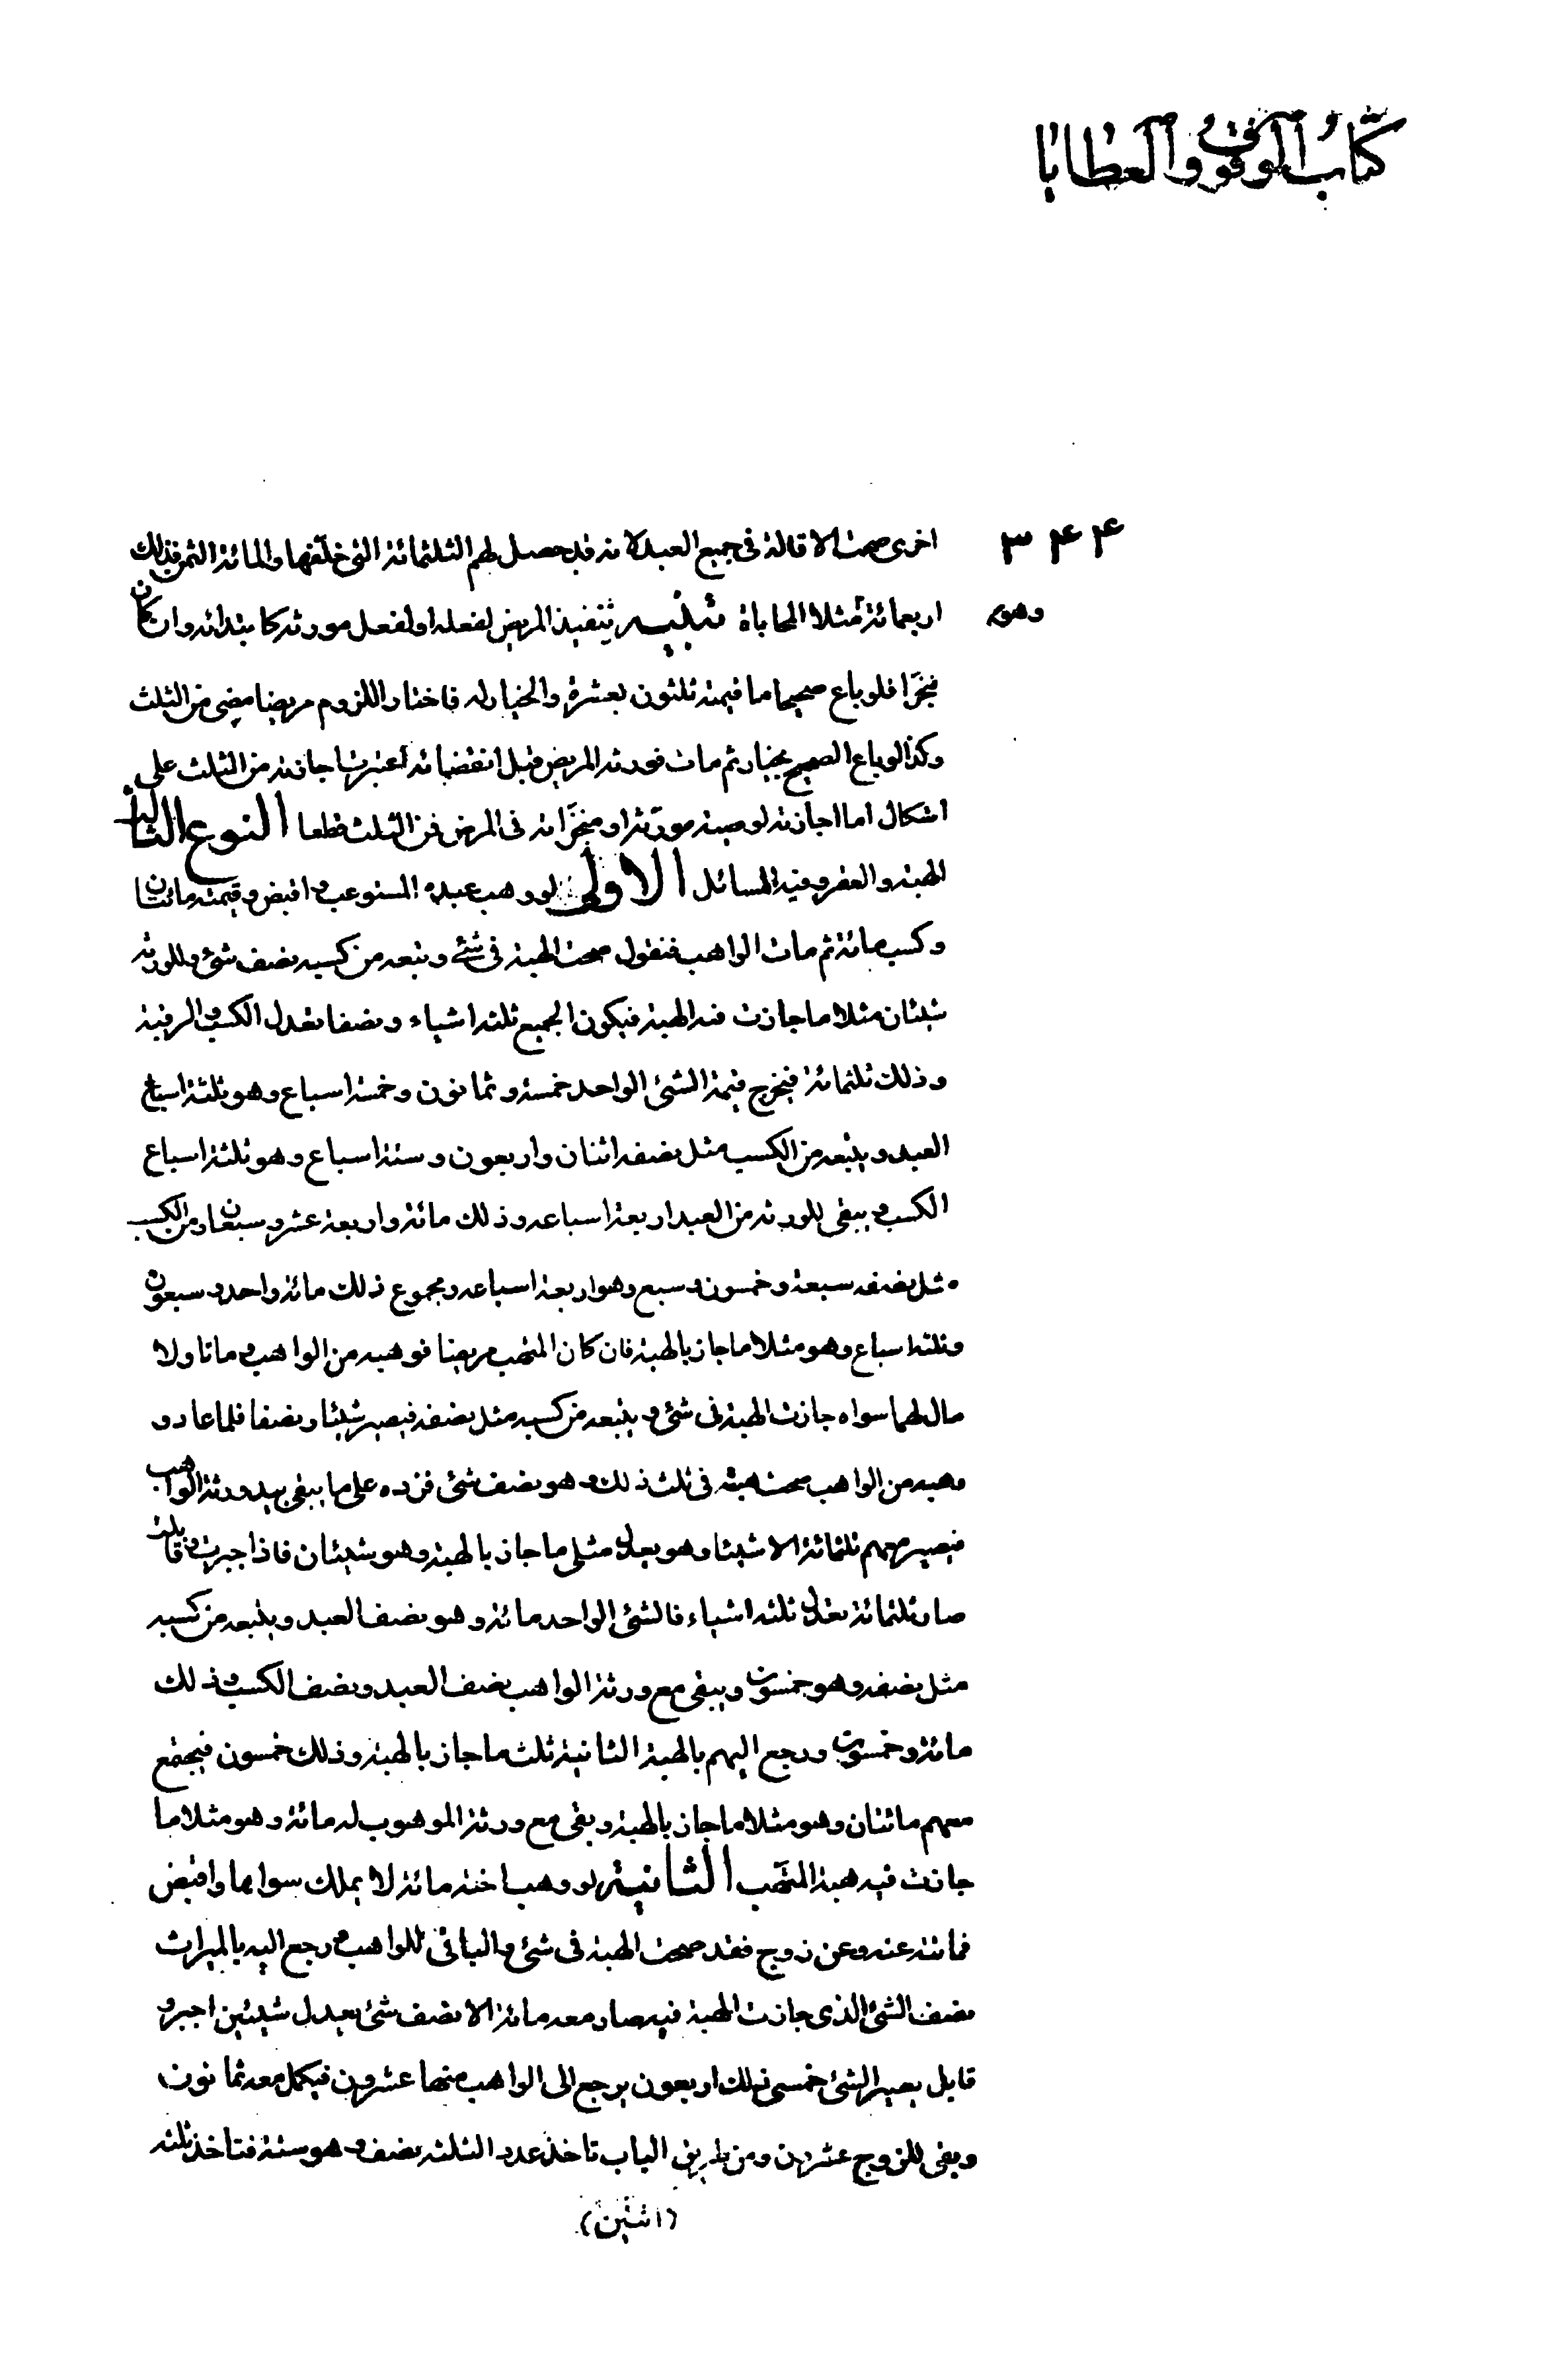 كتاب الوقوف والعطايا
٣٤٤
اخرى صحت الاقالة فى جميع العبد لانه قد حصل لهم الثلثمائة التى خلّفها والمائة الثمن فذلك
وهو
اربعمائة مثلا المحاباة تنبيه تنفيذ المريض لفعله او لفعل مورثه كابتدائه وان كان
منجزا فلو باع صحيحا ما قيمته ثلثون بعشرة والخيار له فاختار اللزوم مريضا مضى من الثلث
وكذا لو باع الصحيح بخيار ثم مات فورثه المريض قبل انقضائه اعتبرت اجازته من الثلث على
اشكال اما اجازته لوصية مورثه او منجزاته فى المرض فمن الثلث قطعا النوع الثالث
الهبة والعقر وفيه المسائل الاولى لو وهب عبده المستوعب واقبض وقيمته مائتان
وكسب مائة ثم مات الواهب فنقول صحت الهبة فى شئ وتبعه من كسبه نصف شئ وللورثة
شيئان مثلا ما جازت فيه الهبة فيكون الجميع ثلثة اشياء ونصفا تعدل الكسب والرقبة
وذلك ثلثمائة فيخرج قيمة الشئ الواحد خمسة وثمانون وخمسة اسباع وهو ثلثة اسباع
العبد ويتبعه من الكسب مثل نصفه اثنان واربعون وستة اسباع وهو ثلثة اسباع
الكسب ويبقى للورثة من العبد اربعة اسباعه وذلك مائة واربعة عشر وسبعان ومن الكسب
مثل نصفه سبعة وخمسون وسبع وهو اربعة اسباعه ومجموع ذلك مائة واحد وسبعون
وثلثة اسباع وهو مثلا ما جاز بالهبة فان كان المتهب مريضا فوهبه من الواهب وماتا ولا
مال لهما سواه جازت الهبة فى شئ ويتبعه من كسبه مثل نصفه فيصير شيئا ونصفا فلما عاد و
وهبه من الواهب صحت هبته فى ثلث ذلك وهو نصف شئ فزده على ما يبقى بيد ورثة الواهب
فيصير معهم ثلثمائة الا شيئا وهو يعدل مثلى ما جاز بالهبة وهو شيئان فاذا جبرت وقابلت
صار ثلثمائة تعدل ثلثة اشياء فالشئ الواحد مائة وهو نصف العبد ويتبعه من كسبه
مثل نصفه وهو خمسون ويبقى مع ورثة الواهب نصف العبد ونصف الكسب وذلك
مائة وخمسون ورجع اليهم بالهبة الثانية ثلث ما جاز بالهبة وذلك خمسون فيجتمع
معهم مائتان وهو مثلا ما جاز بالهبة وبقى مع ورثة الموهوب له مائة وهو مثلا ما
جازت فيه هبة المتهب الثانية لو وهب اخته مائة لا يملك سواها واقبض
فماتت عنه وعن زوج فقد صحت الهبة فى شئ والباقى للواهب ورجع اليه بالميراث
نصف الشئ الذى جازت الهبة فيه صار معه مائة الا نصف شئ يعدل شيئين اجبر و
قابل يصير الشئ خمسى ذلك اربعون يرجع الى الواهب منها عشرون فيكمل معه ثمانون
وبقى للزوج عشرون ومن طريق الباب تاخذ عدد الثلثة نصف وهو ستة فتاخذ ثلثه
(اثنين)